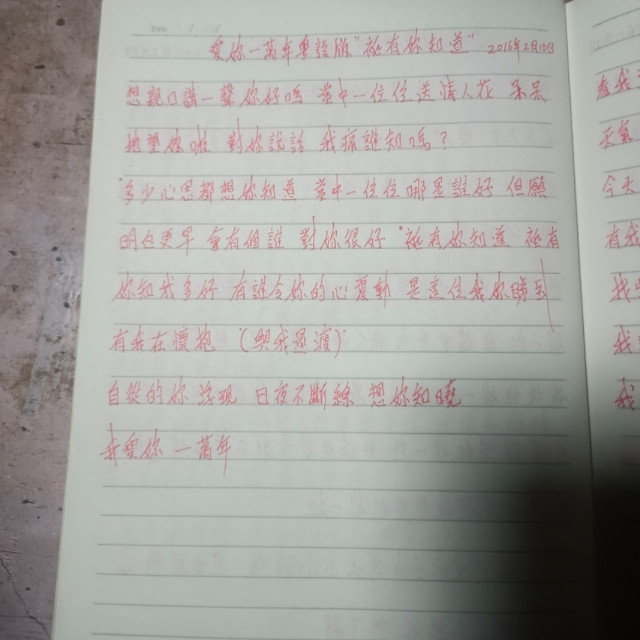 愛你一萬年粵語版"祗有你知道" 2016年2月10日
想親口講一聲你好嗎 當中一位位走清人在 呆呆
地望你啦 對你說話 我痛誰知嗎?
"多少心思都想你知道 當中一位位哪是最好 但願
明白更早 會有個誰 對你很好"祗有你知道 祗有
你知我多好 有誰令你的心震動 是這位我你睇到
有我在懷抱 (與我過渡)
自從的你 發現 日夜不斷線 想你知曉
我愛你 一萬年
看我
天氣
今天
有我
我
我
我